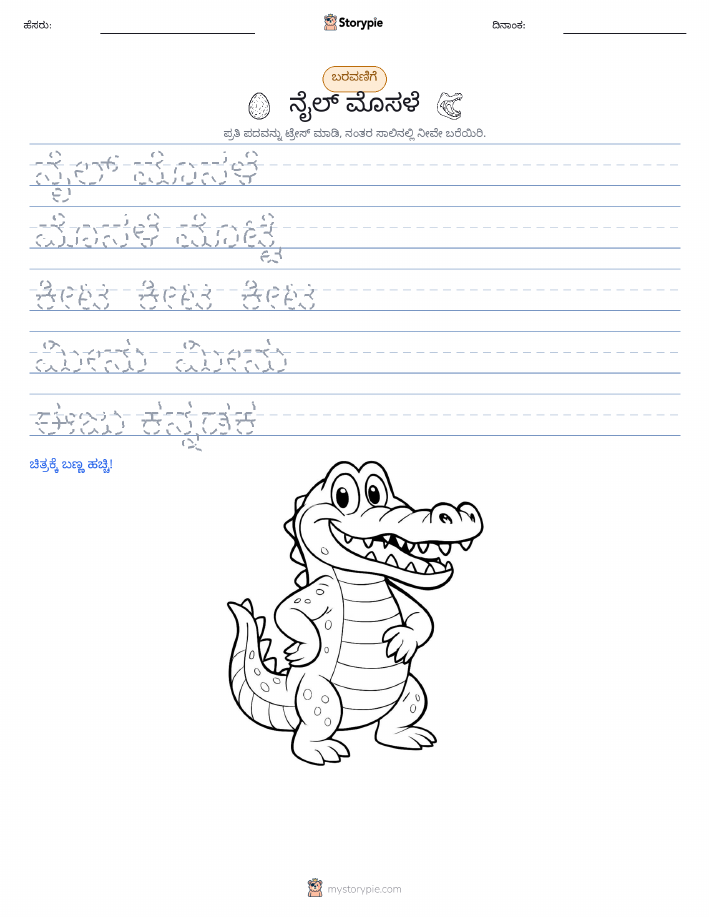 ಹೆಸರು:
Storypie
ದಿನಾಂಕ:
ಬರವಣಿಗೆ
ನೈಲ್ ಮೊಸಳೆ
ಪ್ರತಿ ಪದವನ್ನು ಟ್ರೇಸ್ ಮಾಡಿ, ನಂತರ ಸಾಲಿನಲ್ಲಿ ನೀವೇ ಬರೆಯಿರಿ.
ನೈಲ್ ಮೊಸಳೆ
ಮೊಸಳೆ ಮೊಟ್ಟೆ
ಕೀಟ ಕೀಟ ಕೀಟ
ಮೀನು ಮೀನು
ಈಜು
ಚಿತ್ರಕ್ಕೆ ಬಣ್ಣ ಹಚ್ಚಿ!
mystorypie.com